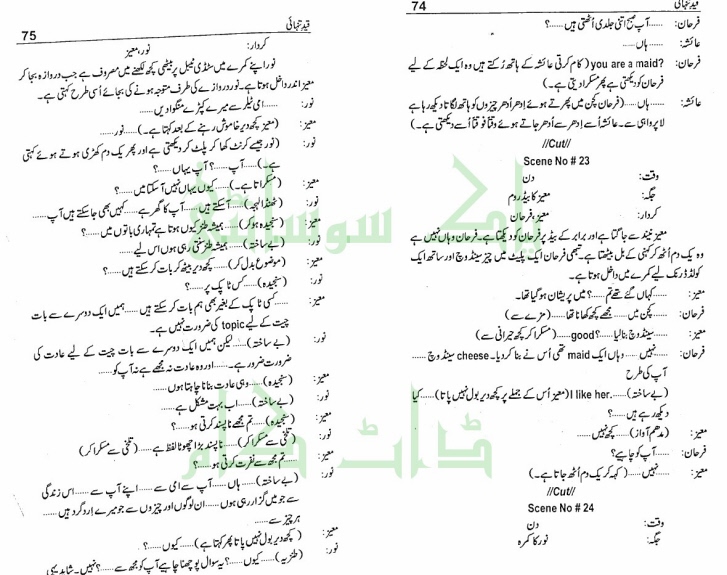 74 قیدِ تنہائی
فرحان: ......آپ صبح اتنی جلدی اُٹھتی ہیں......؟
عائشہ: ہاں......
فرحان: you are a maid?‎ (کام کرتی عائشہ کے ہاتھ رُکتے ہیں وہ ایک لحظہ کے لیے
فرحان کو دیکھتی ہے پھر مسکرا دیتی ہے۔)
عائشہ: ......ہاں......(فرحان کچن میں پھرتے ہوئے اِدھر اُدھر چیزوں کو ہاتھ لگاتا دیکھ رہا ہے
لا پرواہی سے۔ عائشہ اُسے اِدھر سے اُدھر جاتے ہوئے وقتاً فوقتاً اُسے دیکھتی ہے۔)
//Cut//
Scene No # 23
وقت: دن
جگہ: معیز کا بیڈ روم
کردار: معیز، فرحان
معیز نیند سے جاگتا ہے اور برابر کے بیڈ پر فرحان کو دیکھتا ہے۔ فرحان وہاں نہیں ہے
وہ یک دم اُٹھ کر کہنی کے بل بیٹھتا ہے۔ تبھی فرحان ایک پلیٹ میں چیز سینڈوچ اور ساتھ ایک
کولڈ ڈرنک لیے کمرے میں داخل ہوتا ہے۔
معیز: ......کہاں گئے تھے تم......؟ میں پریشان ہو گیا تھا۔
فرحان: کچن میں......مجھے کچھ کھانا تھا......(مزے سے)
معیز: ......سینڈوچ بنا لیا......؟ good......(مسکرا کر کچھ حیرانی سے)
فرحان: ......نہیں......وہاں ایک maid تھی اُس نے بنا کر دیا۔ cheese سینڈوچ......
آپ کی طرح
(بے ساختہ)......I like her.‎ (معیز اُس کے جملے پر کچھ دیر بول نہیں پاتا) ......کیا
دیکھ رہے ہیں......؟
معیز: (مدھم آواز)......کچھ نہیں......
فرحان: ......آپ کو چاہیے؟
معیز: ......نہیں......(کہہ کر یک دم اُٹھ جاتا ہے۔)
//Cut//
Scene No # 24
وقت: دن
جگہ: نور کا کمرہ
75 قیدِ تنہائی
کردار: نور، معیز
نور اپنے کمرے میں سٹڈی ٹیبل پر بیٹھی کچھ لکھنے میں مصروف ہے جب دروازہ بجا کر
معیز اندر داخل ہوتا ہے۔ نور دروازے کی طرف متوجہ ہونے کی بجائے اُسی طرح کہتی ہے۔
نور: ......امی نیلم سے میرے کپڑے منگوا دیں......
معیز: (معیز کچھ دیر خاموش رہنے کے بعد کہتا ہے۔)......نور......
نور: (نور جیسے کرنٹ کھا کر پلٹ کر دیکھتی ہے اور پھر یک دم کھڑی ہوتے ہوئے کہتی
ہے۔)......آپ......؟ آپ یہاں......؟
معیز: (مسکراتا ہے۔)......کیوں یہاں نہیں آ سکتا میں......؟
نور: (ٹھنڈا لہجہ)......آ سکتے ہیں......آپ کا گھر ہے......کہیں بھی جا سکتے ہیں آپ......
معیز: (سنجیدہ ہو کر)......ہمیشہ طنز کیوں ہوتا ہے تمہاری باتوں میں......؟
نور: (بے ساختہ)......ہمیشہ طنز سنتی رہی ہوں اس لیے......
معیز: (موضوع بدل کر)......کچھ دیر بیٹھ کر بات کر سکتے ہیں......؟
نور: (سنجیدہ)......کس ٹاپک پر......؟
معیز: ......کسی ٹاپک کے بغیر بھی ہم بات کر سکتے ہیں......ہمیں ایک دوسرے سے بات
چیت کے لیے topic کی ضرورت نہیں ہے۔
نور: (بے ساختہ)......لیکن ہمیں ایک دوسرے سے بات چیت کے لیے عادت کی
ضرورت ضرور ہے......اور وہ عادت نہ مجھے ہے نہ آپ کو......
معیز: (سنجیدہ)......وہی عادت بنانا چاہتا ہوں......
نور: (بے ساختہ)......اب بہت مشکل ہے......
معیز: (سنجیدہ)......تم مجھے ناپسند کرتی ہو......؟
نور: (تلخی سے مسکرا کر)......ناپسند بڑا چھوٹا لفظ ہے......(تلخی سے مسکرا کر)
معیز: ......تم مجھ سے نفرت کرتی ہو......؟
نور: (بے ساختہ)......ہاں......آپ سے امی سے......اپنے آپ سے......اس زندگی
سے جو میں گزار رہی ہوں......ان لوگوں اور چیزوں سے جو میرے اِرد گرد ہیں......
ہر چیز سے......
معیز: (کچھ دیر بول نہیں پاتا پھر کہتا ہے)......کیوں......؟
نور: (طنزیہ)......کیوں......؟ یہ سوال پوچھنا چاہیے آپ کو مجھ سے......؟ نہیں۔ شاید یہی
پاک سوسائٹی ڈاٹ کام